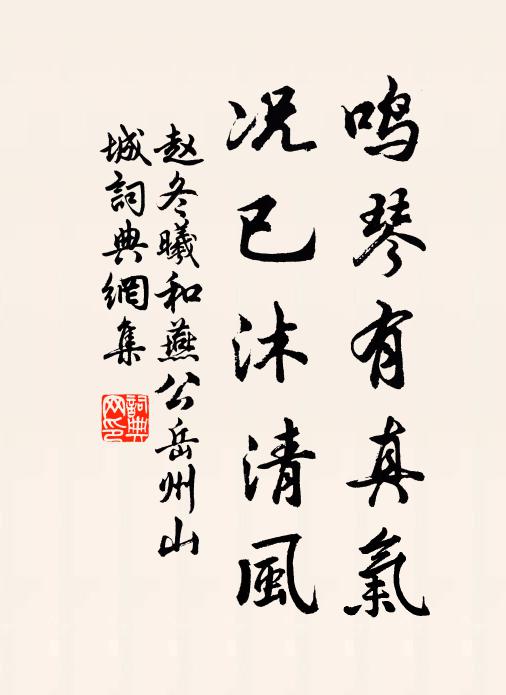 鸣琴有真氣
况已沐清風
赵冬曦和燕公岳州山
城詞典網集
詞典网印